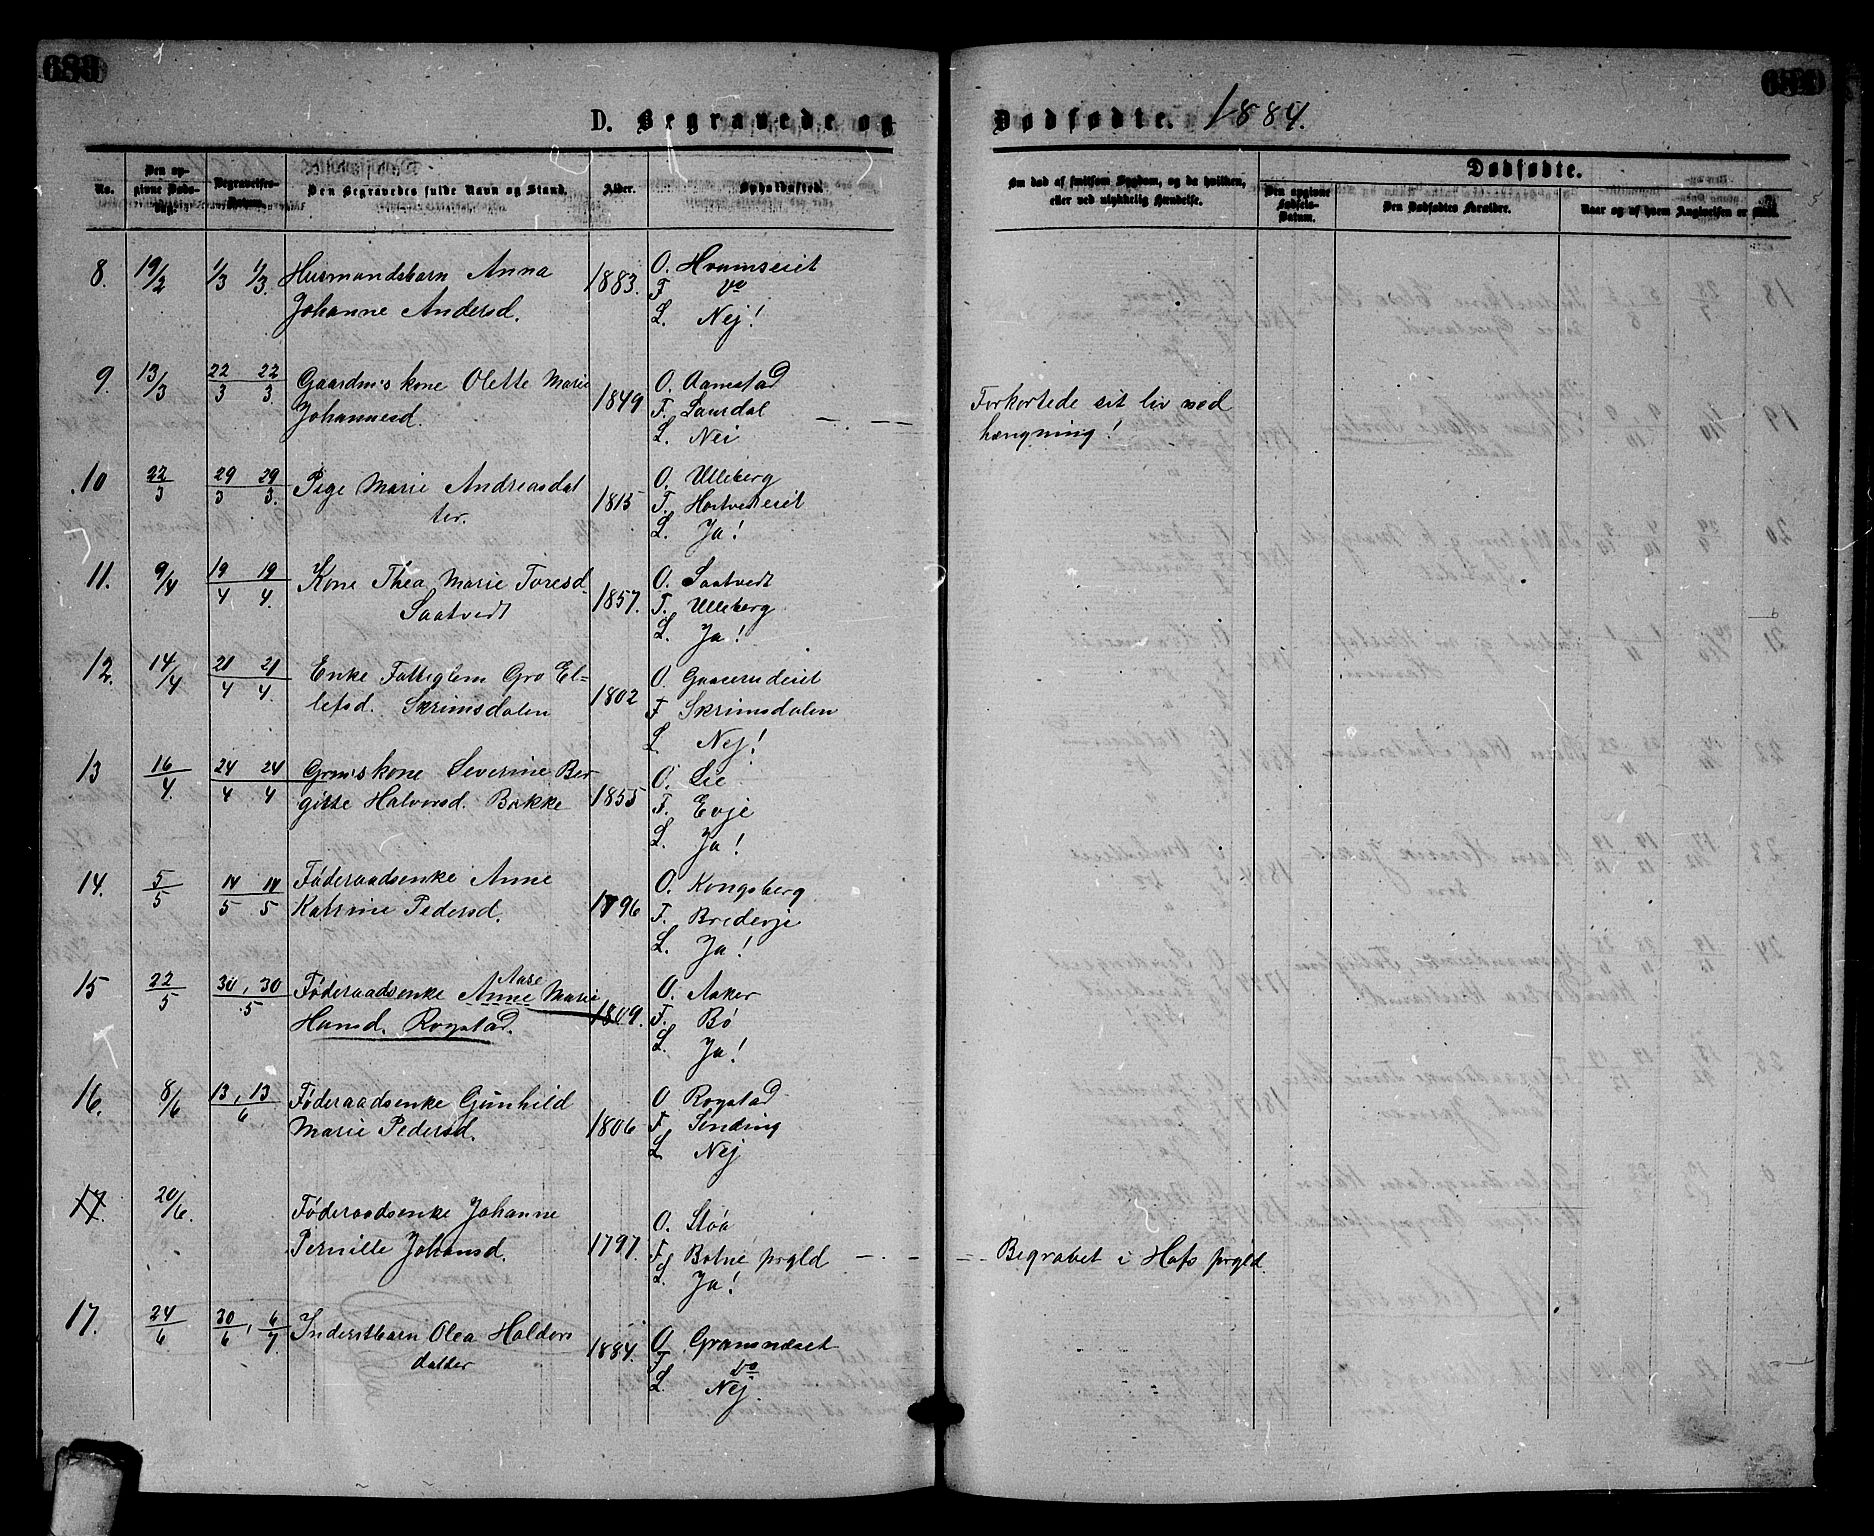 683
684
D. Begravede og
Dødfødte. 1884.
No.
Den op-
givne Døds-
Dag.
Begravelses-
Datum.
Den Begravedes fulde Navn og Stand.
Alder.
Opholdssted.
Om død af smitsom Sygdom, og da hvilken,
eller ved ulykkelig Hændelse.
Dødfødte.
Den opgivne
Fødsels-
Datum.
Den Dødfødtes Forældre.
Naar og af hvem Angivelsen er skeet.
8. 19/2 1/3 1/3. Husmandsbarn Anna
Johanne Andersd.
1883.
O. Hvamseiet
F. do
L. Nej!
9. 13/3 22/3 22/3. Gaardm's kone Olette Marie
Johannesd.
1849
O. Aamestad
F. Lauvdal
L. Nei
Forkortede sit liv ved
hængning!
10 22/3 29/3 29/3. Pige Marie Andreasdat
ter.
1815
O. Ulleberg
F. Hostvedteiet
L. Ja!
11. 9/4 19/4 19/4. Kone Thea Marie Toresd.
Saatvedt
1857.
O. Saatvedt
F. Ulleberg
L. Ja!
12. 14/4 21/4 21/4. Enke Fattiglem Gro El-
lefsd. Skrimsdalen
1802
O. Gaaserudeiet
F. Skrimsdalen
L. Nej!
13 16/4. 24/4 24/4 Grm's kone Severine Ber-
gitte Halvorsd. Bakke
1855
O. Lie
F. Evje
L. Ja!
14. 5/5 14/5 14/5 Føderaadsenke Anne
Katrine Pedersd.
1796
O. Kongsberg
F. Bredevje
L. Ja!
15 22/5 30, 30/5 Føderaadsenke Anne Marie
Aase
Hansd. Rogstad.
1809.
O. Aaker
F. Bö
L. Ja!
16. 8/6 13, 13/6 Føderaadsenke Gunhild
Marie Pedersd.
1806
O Rogstad
F. Sendring
L Nej
17. 20/6. Føderaadsenke Johanne
Pernille Johansd.
1797.
O. Støa
F. Botne prgld
L. Ja!
Begravet i Hofs prgld.
17. 24/6 30/6, 6/7 Inderstbarn Olea Haldors
datter
1884.
O. Gramsnæset
F. do
L. Nej